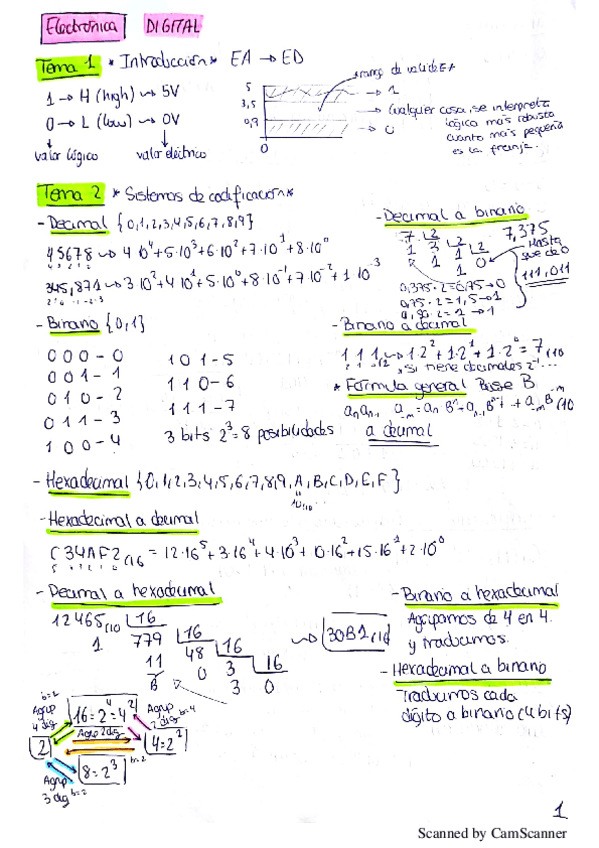 Electrónica DIGITAL
Tema 1 * Introducción * EA → ED
1 → H (high) ↝ 5V
0 → L (low) ↝ 0V
valor lógico valor eléctrico
5
3,5
0,7
0
rango de validez EA
→ 1
→ Cualquier cosa, se interpreta
lógica más robusta
cuanto más pequeña
es la franja.
→ 0
Tema 2 * Sistemas de codificación *
- Decimal {0,1,2,3,4,5,6,7,8,9}
45678 ↝ 4·10⁴+5·10³+6·10²+7·10¹+8·10⁰
4 3 2 1 0
345,871 ↝ 3·10²+4·10¹+5·10⁰+8·10⁻¹+7·10⁻²+1·10⁻³
2 1 0 -1 -2 -3
- Decimal a binario
7 |2
1 3 |2
1 1 |2
1 0
7,375
Hasta
que dé 0
111,011
0,375·2=0,75→0
0,75·2=1,5→1
2=1→1
- Binario {0,1}
000-0
001-1
010-2
011-3
100-4
101-5
110-6
111-7
3 bits 2³=8 posibilidades
- Binario a decimal
111 ↝ 1·2²+1·2¹+1·2⁰=7/10
si tiene decimales 2⁻¹...
* Fórmula general Base B
a decimal
- Hexadecimal {0,1,2,3,4,5,6,7,8,9,A,B,C,D,E,F}
10/10...
- Hexadecimal a decimal
C34AF2/16 = 12·16⁵+3·16⁴+4·16³+10·16²+15·16¹+2·16⁰
5 4 3 2 1 0
- Decimal a hexadecimal
12465/10 |16
1 779 |16
11 48 |16
B 0 3 |16
3 0
↝ 30B1/16
- Binario a hexadecimal
Agrupamos de 4 en 4.
y traducimos.
- Hexadecimal a binario
Traducimos cada
dígito a binario (4 bits)
b=2
Agrup
4 dig
16=2⁴=4²
Agrup
2 dig
b=4
2
Agrup 2 dig
b=2
4=2²
8=2³
Agrup
3 dig b=2
1
Scanned by CamScanner